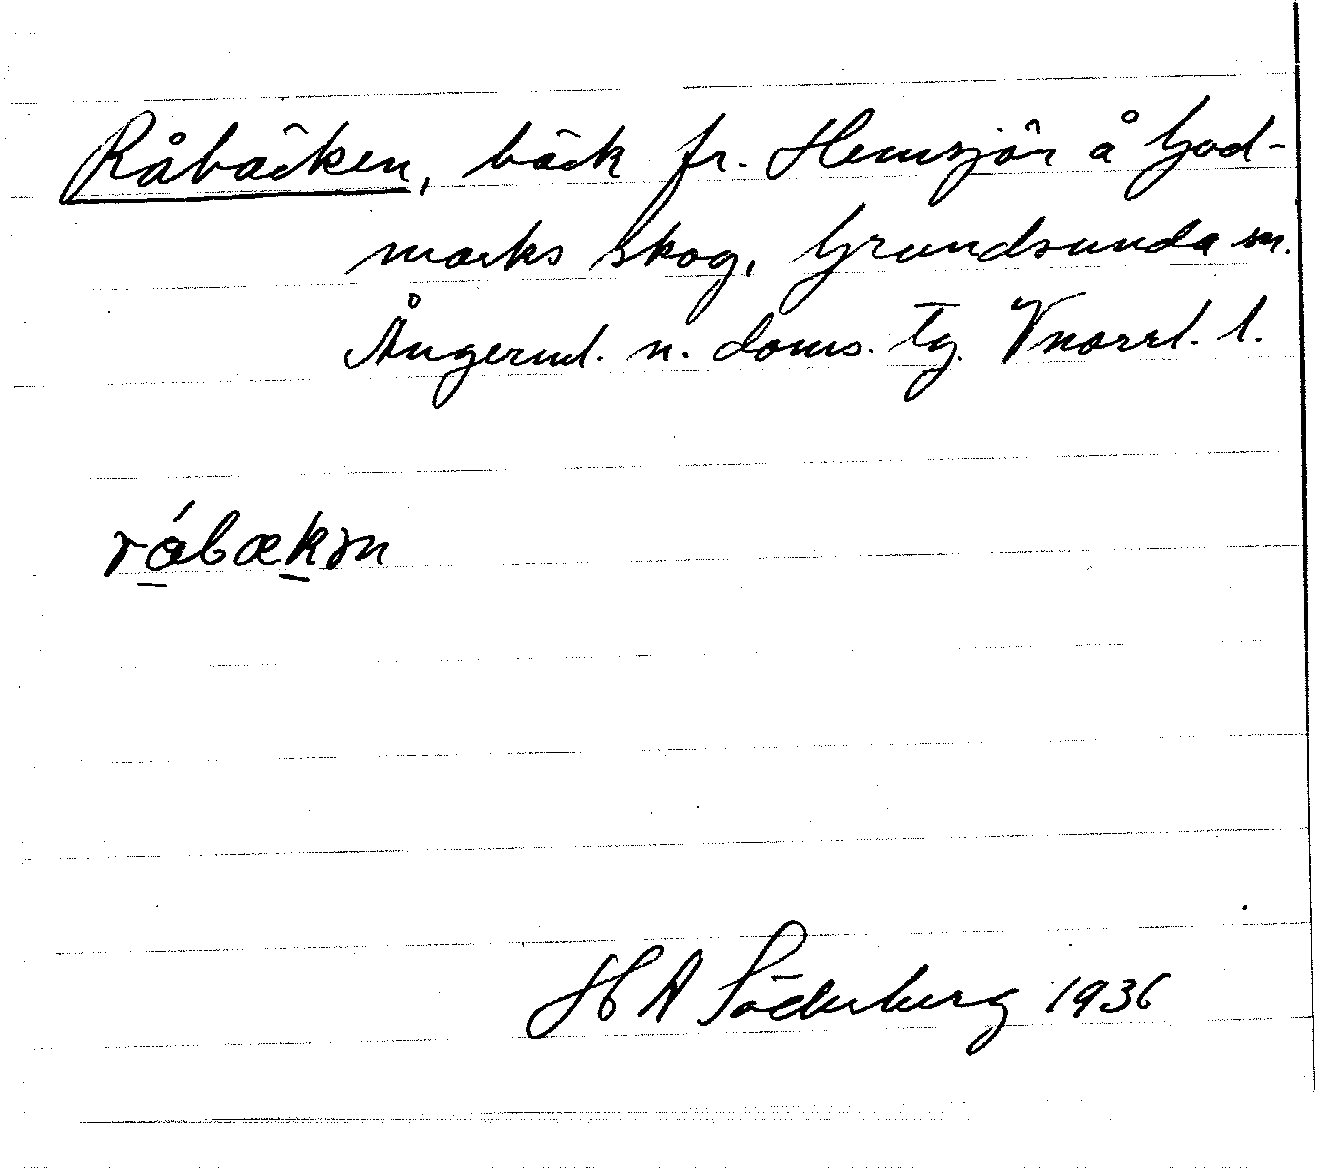 Råbäcken, bäck fr. Hemsjön å God-
marks skog, Grundsunda sn.
Ångerml. n. doms. tg. Vnorrl. l.
råbækən
H A Söderberg 1936